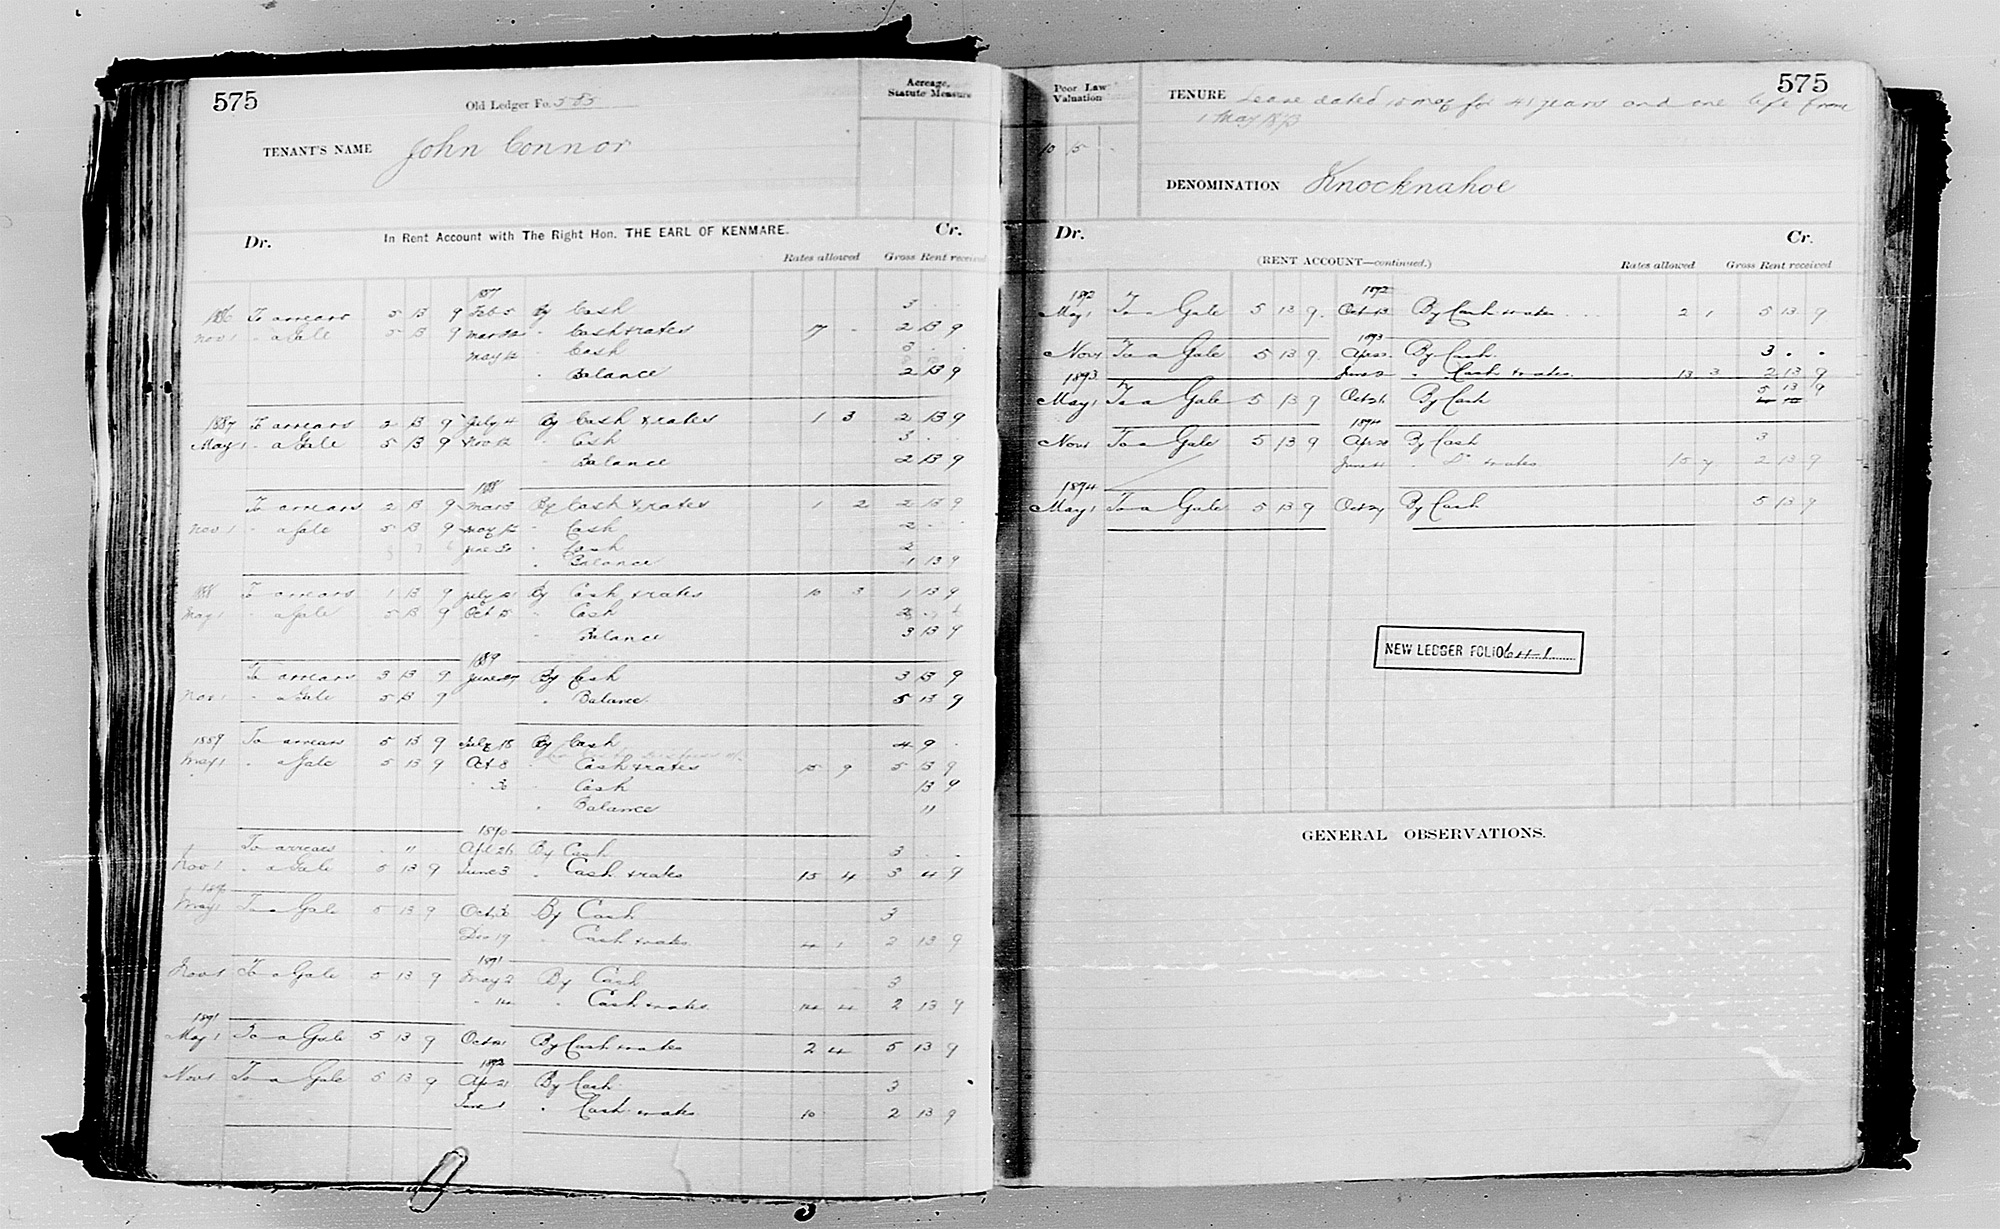 575
Old Ledger Fo. 585
Acreage, Statute Measure
TENANT'S NAME John Connor
Dr. In Rent Account with The Right Hon. THE EARL OF KENMARE. Cr.
Rates allowed Gross Rent received
1887
1886 To arrears 5 13 9 Feb 5 By Cash 3 . .
Nov 1 " a Gale 5 13 9 Mar 12 " Cash & rates 7 - 2 13 9
May 12 " Cash 3 . .
" Balance 2 13 9
1887 To arrears 2 13 9 July 4 By Cash & rates 1 3 2 13 9
May 1 " a Gale 5 13 9 Nov 12 " Cash 3 . .
" Balance 2 13 9
1888
To arrears 2 13 9 Mar 3 By Cash & rates 1 2 2 13 9
Nov 1 " a Gale 5 13 9 May 12 " Cash 2 . .
June 30 " Cash 2
" Balance 1 13 9
1888 To arrears 1 13 9 July 21 By Cash & rates 10 3 1 13 9
May 1 " a Gale 5 13 9 Oct 15 " Cash 2
" Balance 3 13 9
1889
To arrears 3 13 9 June 27 By Cash 3 13 9
Nov 1 " a Gale 5 13 9 " Balance 5 13 9
1889 To arrears 5 13 9 July 18 By Cash 4 9 .
May 1 " a Gale 5 13 9 Oct 8 " Cash & rates 15 9 5 13 9
" 30 " Cash 13 9
" Balance 11
1890
To arrears . 11 . Apl 26 By Cash 3 . .
Nov 1 " a Gale 5 13 9 June 3 " Cash & rates 15 4 3 4 9
1890
May 1 To a Gale 5 13 9 Oct 30 By Cash 3
Dec 19 " Cash & rates 4 1 2 13 9
1891
Nov 1 To a Gale 5 13 9 May 2 By Cash 3
" 14 " Cash & rates 14 4 2 13 9
1891
May 1 To a Gale 5 13 9 Oct 21 By Cash & rates 2 4 5 13 9
1892
Nov 1 To a Gale 5 13 9 Ap 21 By Cash 3
June 1 " Cash & rates 10 2 13 9
Poor Law Valuation
575
TENURE Lease dated 10 May for 41 years and one life from
1 May 1873
10 15 -
DENOMINATION Knocknahoe
Dr. Cr.
(RENT ACCOUNT—continued.) Rates allowed Gross Rent received
1892 1892
May 1 To a Gale 5 13 9 Oct 13 By Cash & rates 2 1 5 13 9
1893
Nov 1 To a Gale 5 13 9 Ap 22 By Cash 3 . .
June 2 " Cash & rates 13 3 2 13 9
1893 5 13 9
May 1 To a Gale 5 13 9 Oct 21 By Cash
1894
Nov 1 To a Gale 5 13 9 Ap 28 By Cash 3
June 11 " Do & rates 15 7 2 13 9
1894
May 1 To a Gale 5 13 9 Oct 27 By Cash 5 13 9
NEW LEDGER FOLIO 641
GENERAL OBSERVATIONS.